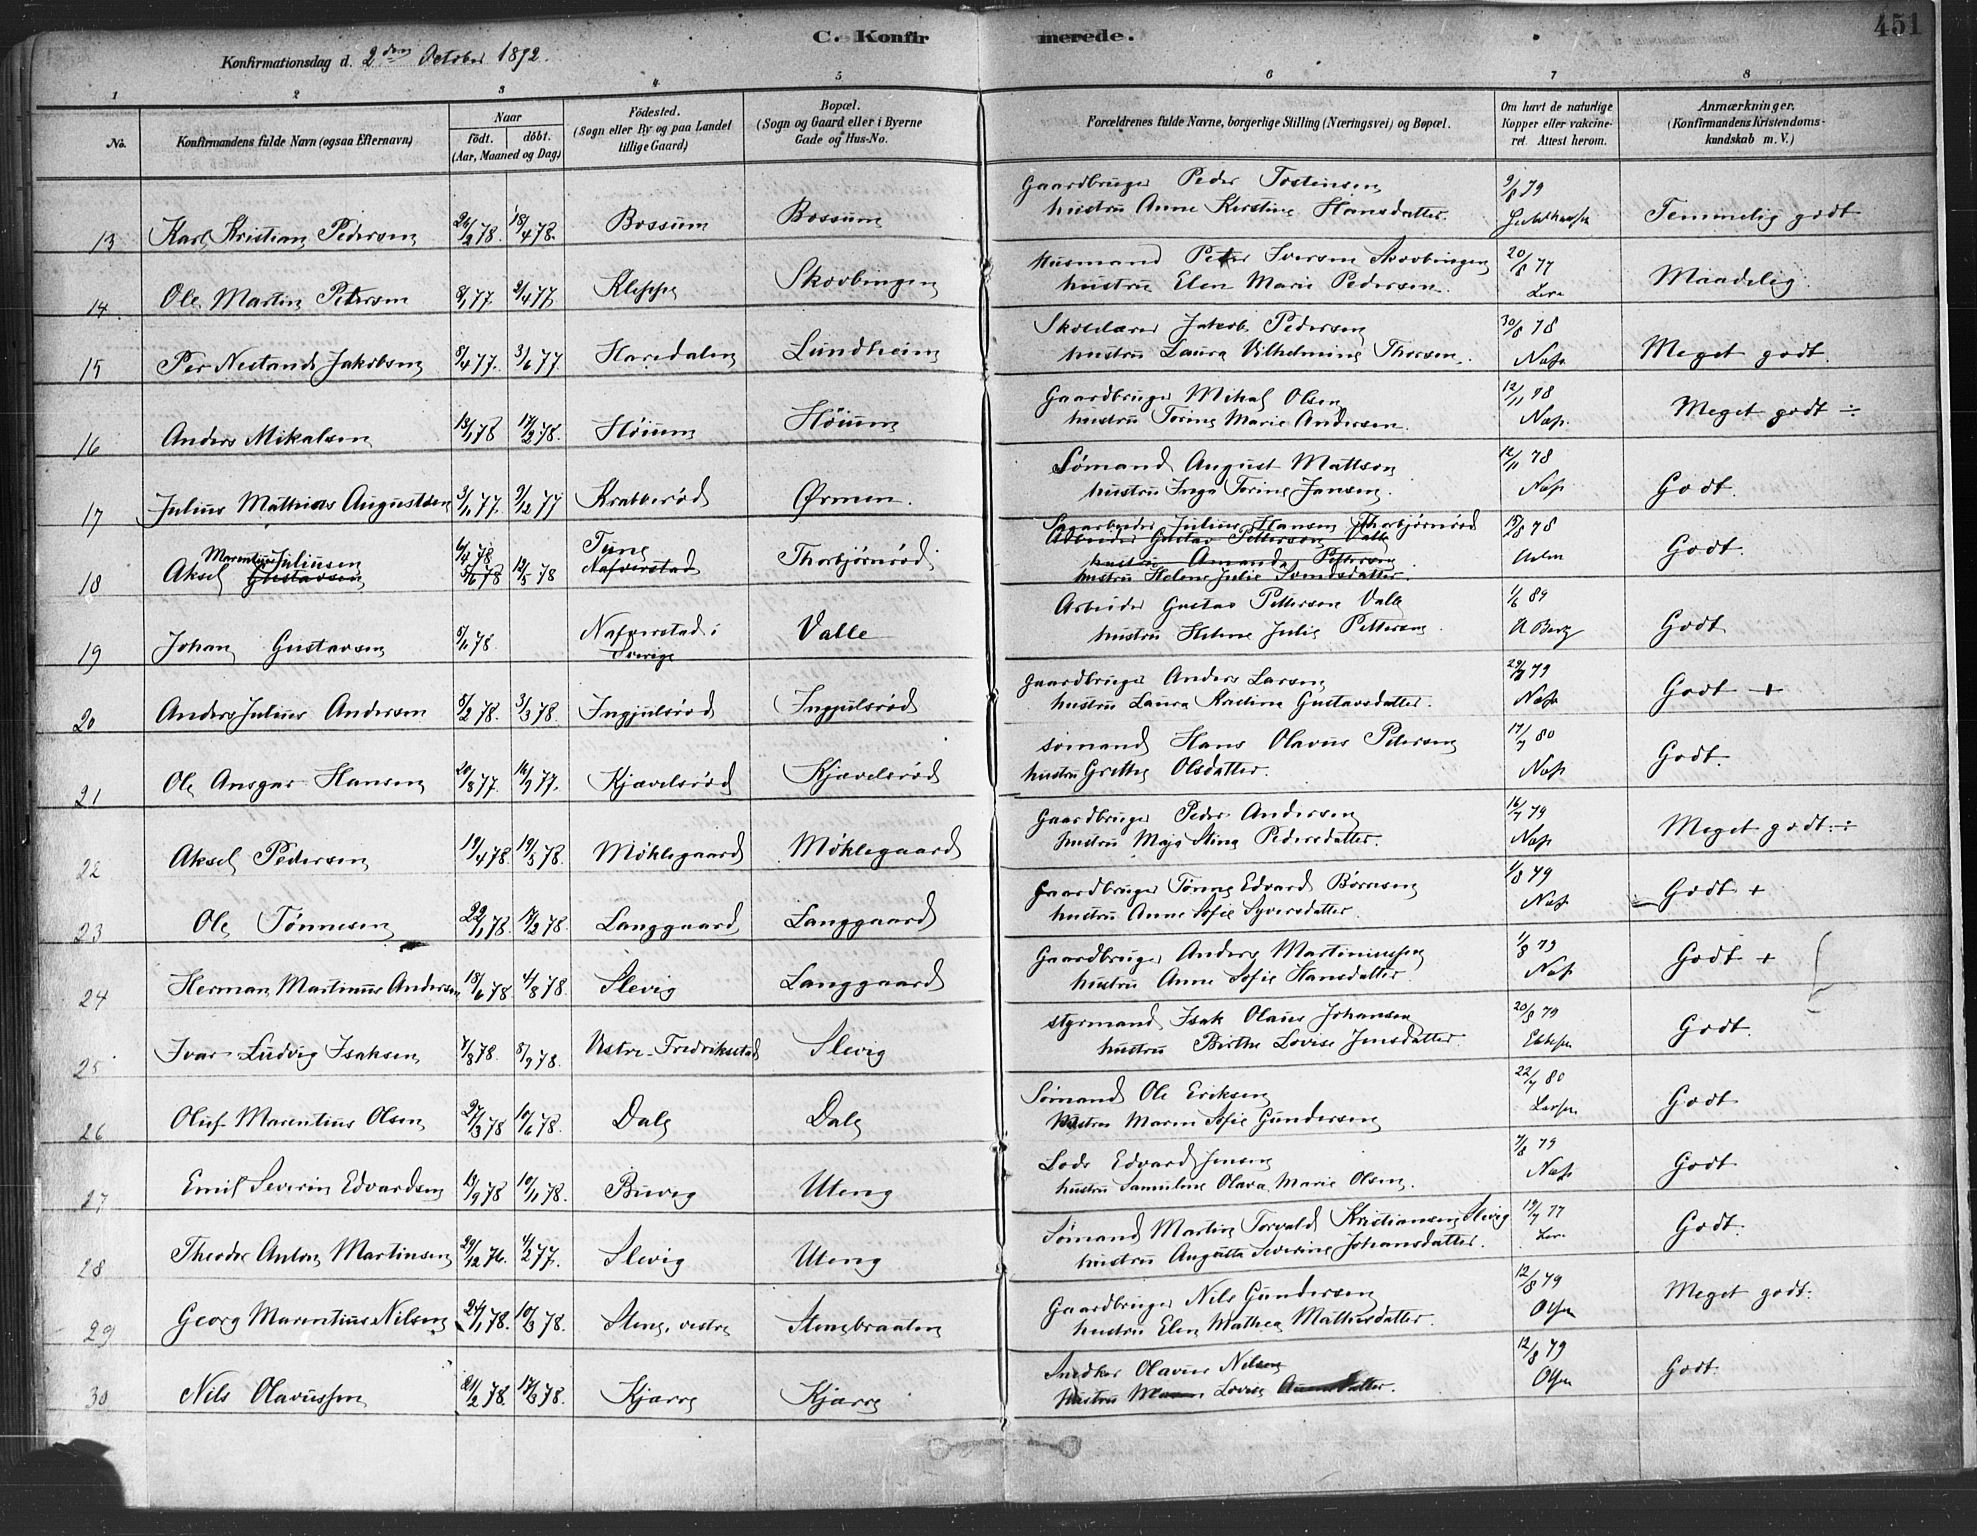 451
C. Konfirmerede.
Konfirmationsdag d. 2den October 1892.
1 2 3 4 5 6 7 8
No.
Konfirmandens fulde Navn (ogsaa Efternavn)
Naar
födt. döbt.
(Aar, Maaned og Dag)
Födested.
(Sogn eller By og paa Landet
tillige Gaard)
Bopæl.
(Sogn og Gaard eller i Byerne
Gade og Hus-No.
Forældrenes fulde Navne, borgerlige Stilling (Næringsvei) og Bopæl.
Om havt de naturlige
Kopper eller vakcine-
ret. Attest herom.
Anmærkninger.
(Konfirmandens Kristendoms-
kundskab m. V.)
13 Karl Kristian Pedersen 26/2 78. 18/4 78. Bossum Bossum Gaardbruger Peder Tostensen 9/8 79
hustru Anne Kirstine Hansdatter. Temmelig godt
14. Ole Martin Petersen 8/1 77. 2/4 77. Kleppe Skovbingen Husmand Peter Iversen Skovbingen 20/8 77
hustru Elen Marie Pedersen. Maadelig.
15 Per Nestande Jakobsen 8/4 77. 3/6 77. Haredalen Lundheim Skolelærer Jakob Pedersen 30/8 78
hustru Laura Vilhelmine Thorsen. Næss Meget godt.
16 Anders Mikalsen 13/1 78 17/2 78. Höium Höium Gaardbruger Mikal Olsen 12/11 78
hustru Torine Marie Andersen. Næss Meget godt ÷
17 Julius Mathias Augustsen 3/11 77. 9/12 77 Krabberød Ørmen. Sömand August Mattson 12/11 78
hustru Inga Torine Jansen. Næss Godt.
18 Aksel Marentius Juliusen Gustavsen 6/4 78 5/6 78 12/5 78 Tune Nafverstad Thorbjørnrød Sagarbeider Julius Hansen Thorbjørnrød 15/8 78
Arbeider Gustav Pettersen Valle
hustru Amanda Petterson
hustru Helene Julie Svendsdatter. Godt.
19 Johan Gustavsen 5/1 78. Nafverstad i Sverige Valle Arbeider Gustav Petterson Valle 1/6 89
hustru Helene Julie Pettersen. A Berg Godt
20 Anders Julius Andersen 5/2 78. 3/3 78. Ingjulsrød Ingjulsrød Gaardbruger Anders Larsen 29/7 79
hustru Laura Kristina Gustavsdatter. Næss Godt +
21 Ole Ansgar Hansen 20/8 77. 16/9 77. Kjævelsrød Kjævelsrød sömand Hans Olavus Petersen 17/7 80
hustru Grethe Olsdatter. Næss Godt.
22 Aksel Pedersen 19/4 78. 19/5 78. Møklegaard Møklegaard Gaardbruger Peder Andersen 16/7 79
hustru Maja Stina Pedersdatter. Næss Meget godt ÷
23 Ole Tönnesen 22/1 78. 17/2 78. Langgaard Langgaard Gaardbruger Tönnes Edvard Börresen 1/8 79
hustru Anne Sofie Syversdatter. Næss Godt +
24 Herman Martinus Andersen 18/6 78. 4/8 78. Slevig Langgaard Gaardbruger Anders Martiniussen 1/8 79
hustru Anne Sofie Hansdatter. Næss Godt +
25 Ivar Ludvig Isaksen 7/8 78. 8/9 78. Vestre Fredrikstad Slevig styrmand Isak Olaus Johansen 20/8 79
hustru Birthe Lovise Jensdatter. Godt
26 Oluf Marentius Olsen 27/3 78 10/6 78. Dale Dale Sömand Ole Eriksen 22/7 80
hustru Maren Sofie Gundersen Larsen Godt
27 Emil Severin Edvardsen 13/9 78 10/11 78. Buveg Uteng Lods Edvard Jensen 7/8 79
hustru Samuline Olava Marie Olsen. Næss Godt
28 Theodor Anton Martinsen 29/12 76. 4/2 77. Slevig Uteng Sömand Martin Torvald Kristiansen Slevig 19/7 77
hustru Augusta Severine Johansdatter. Godt.
29 Georg Marentius Nilsen 24/1 78. 10/3 78. Stene, vestre Stenebraaten Gaardbruger Nils Gundersen 12/8 79
hustru Elen Mathea Mathisdatter. Olsen Meget godt.
30 Nils Olavussen 21/2 78. 17/3 78. Kjærre Kjærre Snedker Olavus Nilsen 12/8 79
hustru Lovise Olsen Godt.